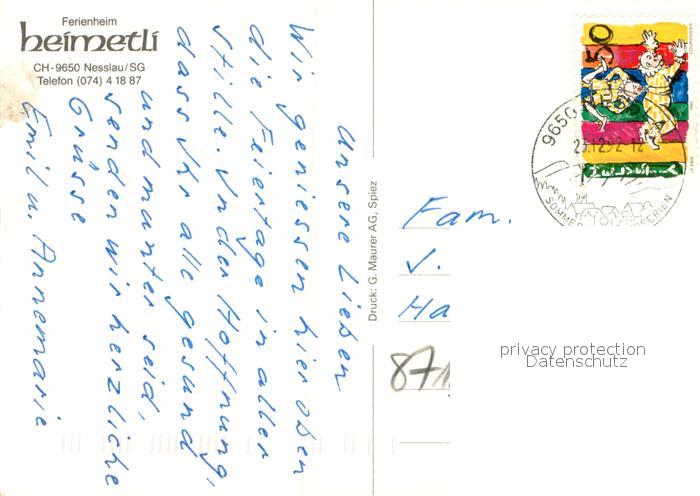 Ferienheim
heimetli
CH-9650 Nesslau/SG
Telefon (074) 4 18 87
unsere Lieben
Wir geniessen hier oben
die Feiertage in aller
Stille. In der Hoffnung,
dass Ihr alle gesund
und munter seid,
senden wir herzliche
Grüsse
Emil u. Annemarie
Druck: G. Maurer AG, Spiez
50
9650
23.12.92-12
SOMMER
FERIEN
Fam.
J.
Ha
871
privacy protection
Datenschutz